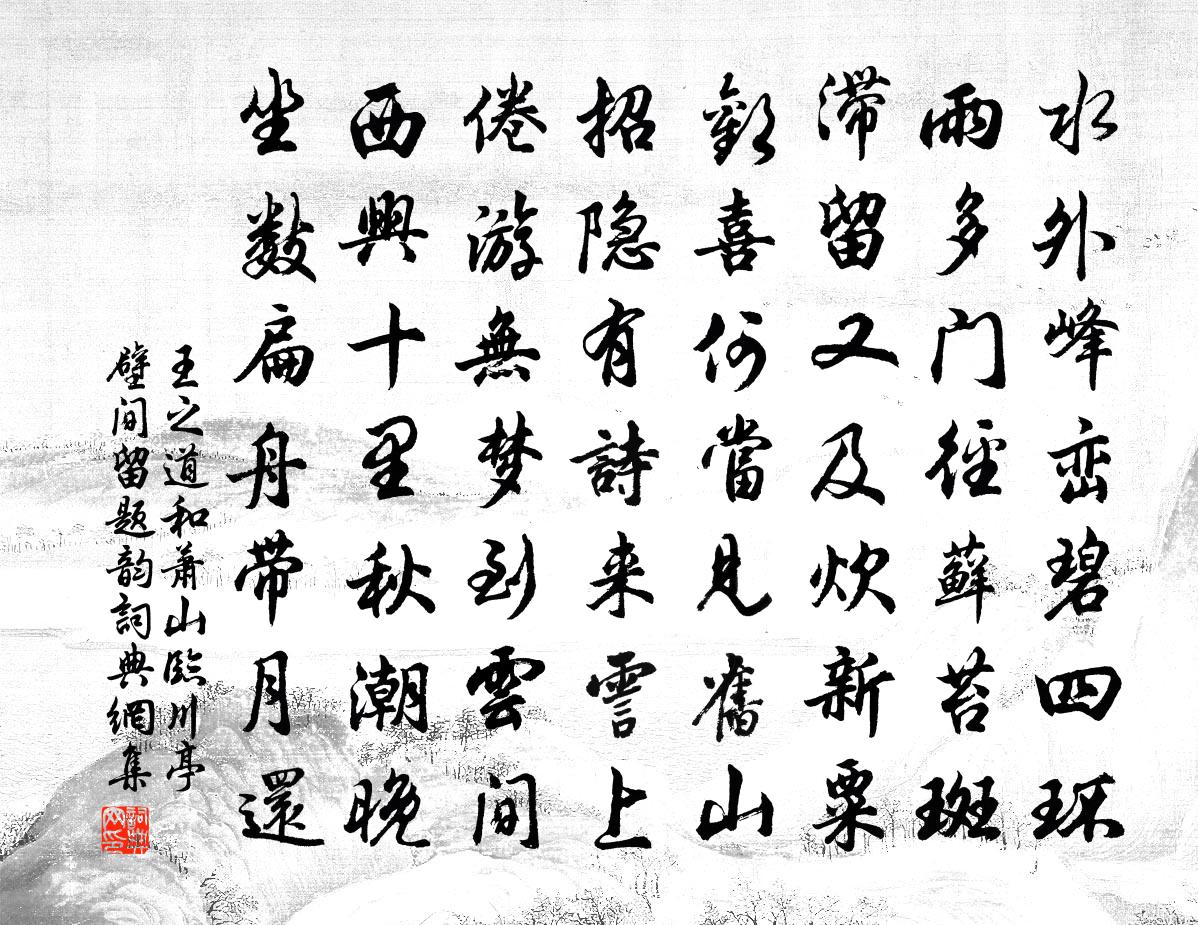 水外峰峦碧四环
雨多门径藓苔斑
滞留又及炊新粟
歡喜何當見舊山
招隐有詩来雪上
倦游無梦到雲間
西興十里秋潮晚
坐数扁舟带月還
王之道和萧山臨川亭
壁间留题韵詞典網集